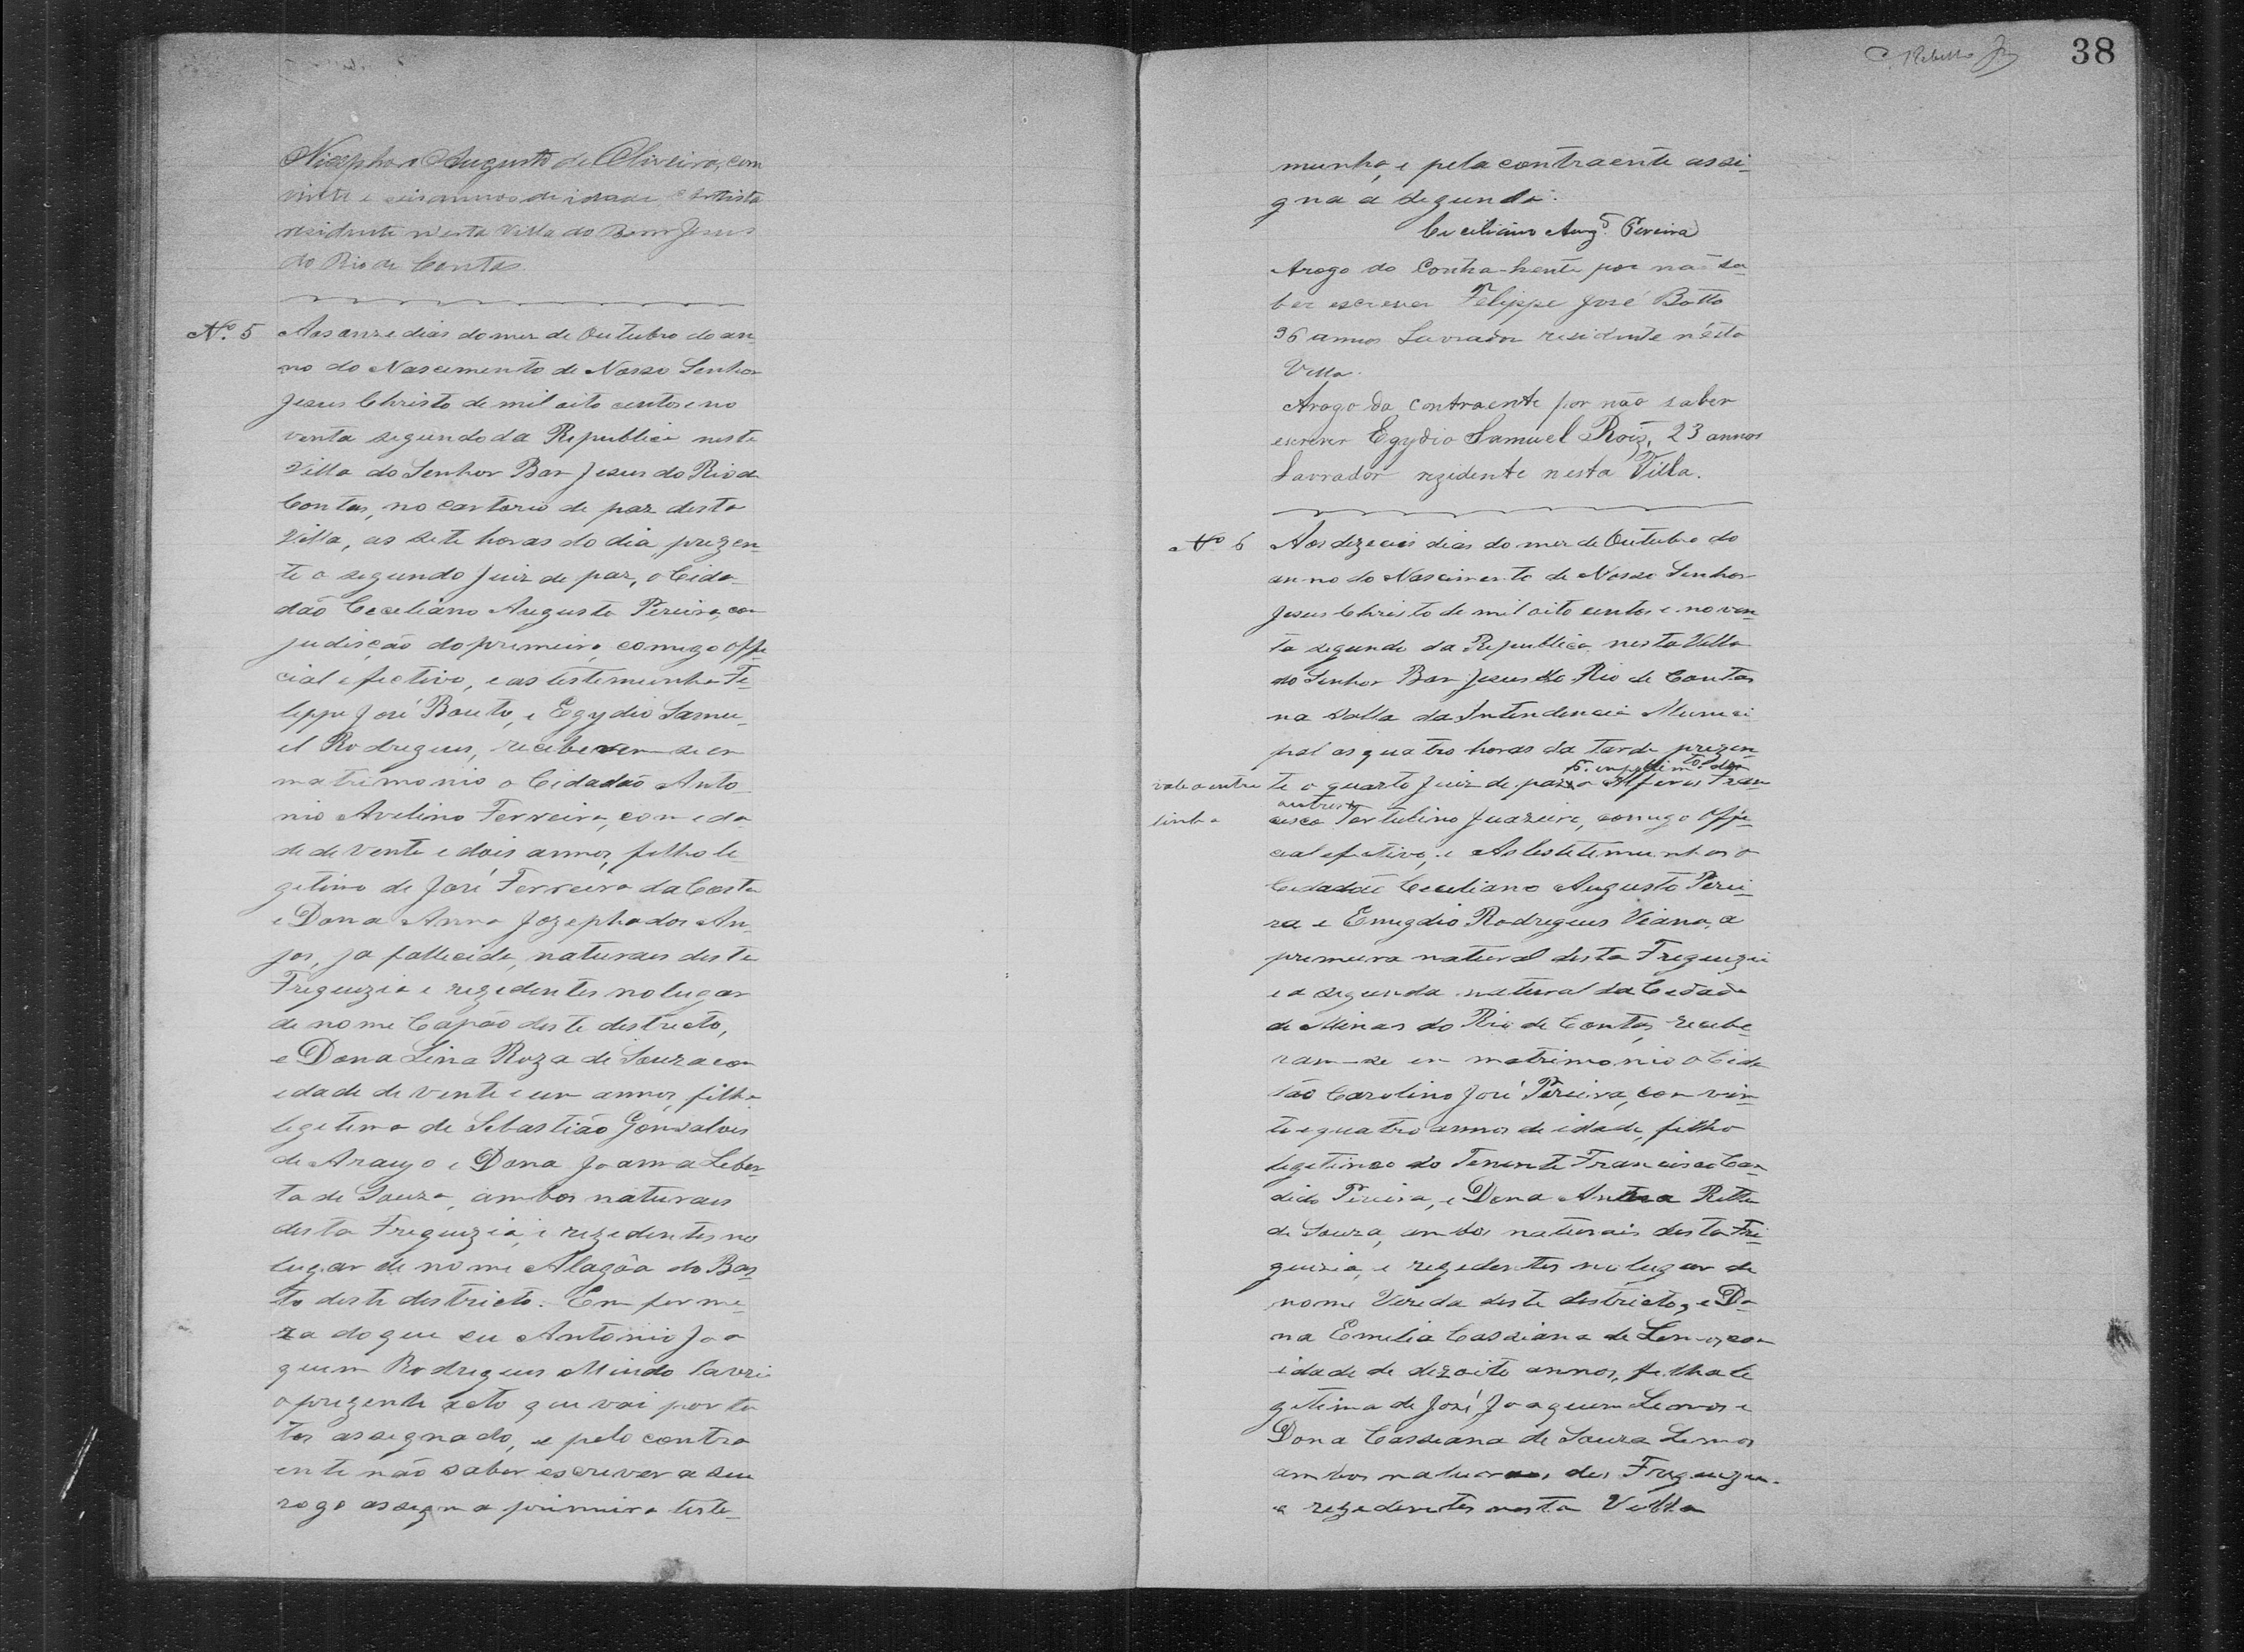 Nicephoro Augusto de Oliveira, com
vinte e seis annos de idade
residente n'esta Villa do Bom Jesus
do Rio de Contas
Nº. 5 Aos onze dias do mez de Outubro do an-
no do Nascimento de Nosso Senhor
Jesus Christo de mil oito centos e no
venta segundo da Republica neste
Villa do Senhor Bom Jesus do Rio de
Contas, no cartorio de paz desta
Villa, as sete horas do dia, prezen-
te o segundo Juiz de paz, o Cida-
dão Ceciliano Augusto Pereira, com
judisção do primeiro, comigo Offi
cial efectivo, e as testemunha Fe-
lippe José Bouto, e Egydio Samu-
el Rodrigues, receberem-se em
matrimonio o Cidadão Anto
nio Avelino Ferreira, com eda-
de de vente e dois annos, filho le-
getimo de José Ferreira da Costa
e Dona Anna Jozepha dos An-
jos, ja fallecida, naturaes deste
Freguizia e rezedentes no lugar
de nome Capão deste destricto,
e Dona Lina Roza de Souza com
edade de vente e um annos, filha
legetema de Sebastião Gonsalves
de Araujo e Dona Joanna Leber-
ta de Souza, ambos naturaes
desta Freguizia, e rezedentes no
lugar de nome Alagôa do Bas-
to deste destricto. Em ferme-
za do que eu Antonio Joa
quem Rodrigues Mindo lavrei
o prezente acto que vai por to
tos assegnado, e pelo contra
ente não saber escrever a seu
rogo assegna primeira teste-
38
munha, e pela contraente assi-
gna a segunda.
Ceciliano Augº. Pereira
Arogo do Contrahente por não sa-
ber escrever Felippe José Botto
36 annos Lavrador residente n'esta
Villa.
Arogo da contraente por não saber
escrever Egydio Samuel Roiz, 23 annos
Lavrador rezidente nesta Villa.
Nº 6 Aos dezeceis dias do mez de Outubro do
anno do Nascimento de Nosso Senhor
Jesus Christo de mil oito centos e noven-
ta segundo da Republica nesta Villa
do Senhor Bom Jesus do Rio de Contas
na salla da Intendencia Munici
pal as quatro horas da tarde prezen
vale a entre te o quarto Juiz de paz o Alferes Fran
linha cisco Tertulino Juazeiro, comigo Offi-
cial efectivo, e As testetemunhas o
Cidadão Ceciliano Augusto Perei-
ra e Emygdio Rodrigues Viana, a
premeira natural desta Freguizia
e a segunda natural da Cedade
de Minas do Rio de Contas, recebe
ram-se em matrimonio o Cida
dão Carolino José Pereira, com vin-
te e quatro annos de idade, filho
legetimo do Tenente Francisco Can-
dido Pereira, e Dona Anna Ritta
de Souza, ambos naturais desta Fre-
guizia, e rezedentes no lugar de
nome Vereda deste destricto, e Do-
na Emilia Cassiana de Lemos, com
idade de dezoito annos, filha le
getima de José Joaquem Lemos e
Dona Cassiana de Souza Lemos
ambos naturaes des Freguizia
e rezedentes nesta Villa